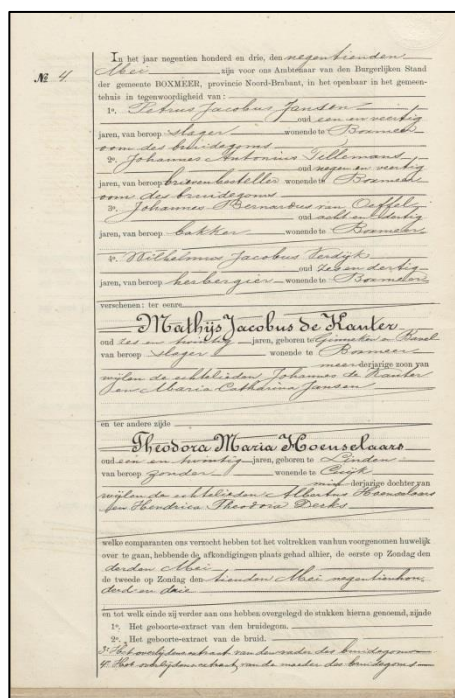 In het jaar negentien honderd en drie, den negentienden
Mei zijn voor ons Ambtenaar van den Burgerlijken Stand
der gemeente BOXMEER, provincie Noord-Brabant, in het openbaar in het gemeen-
tehuis in tegenwoordigheid van:
No 4.
1o. Petrus Jacobus Jansen
oud een en veertig
jaren, van beroep slager wonende te Boxmeer
oom des bruidegoms
2o. Johannes Antonius Tellemans
oud negen en veertig
jaren, van beroep brievenbesteller wonende te Boxmeer
oom des bruidegoms
3o. Johannes Bernardus van Oeffel
oud acht en dertig
jaren, van beroep bakker wonende te Boxmeer
4o. Wilhelmus Jacobus Verdijk
oud zes en dertig
jaren, van beroep herbergier wonende te Boxmeer
verschenen: ter eenre
Mathijs Jacobus de Kanter
oud zes en twintig jaren, geboren te Ginneken en Bavel
van beroep slager wonende te Boxmeer
meerderjarige zoon van
wijlen de echtelieden Johannes de Kanter
en Maria Catharina Jansen
en ter andere zijde
Theodora Maria Hoenselaars
oud een en twintig jaren, geboren te Linden
van beroep zonder wonende te Cuijk
minderjarige dochter van
wijlen de echtelieden Albertus Hoenselaars
en Hendrica Theodora Derks
welke comparanten ons verzocht hebben tot het voltrekken van hun voorgenomen huwelijk
over te gaan, hebbende de afkondigingen plaats gehad alhier, de eerste op Zondag den
derden Mei
de tweede op Zondag den tienden Mei negentienhon,
derd en drie
en tot welk einde zij verder aan ons hebben overgelegd de stukken hierna genoemd, zijnde
1o. Het geboorte-extract van den bruidegom.
2o. Het geboorte-extract van de bruid.
3o. Het overlijdensextract van den vader des bruidegoms
4o. Het overlijdensextract van de moeder des bruidegoms